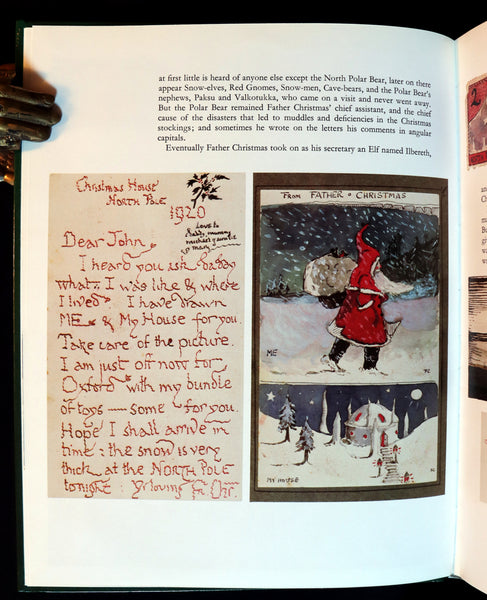 at first little is heard of anyone else except the North Polar Bear, later on there
appear Snow-elves, Red Gnomes, Snow-men, Cave-bears, and the Polar Bear's
nephews, Paksu and Valkotukka, who came on a visit and never went away.
But the Polar Bear remained Father Christmas' chief assistant, and the chief
cause of the disasters that led to muddles and deficiencies in the Christmas
stockings; and sometimes he wrote on the letters his comments in angular
capitals.
Eventually Father Christmas took on as his secretary an Elf named Ilbereth,
Christmas House
NORTH POLE
1920
Love to
daddy, mummy
michael & auntie
mary
Dear John
I heard you ask daddy
what I was like & where
I lived. I have drawn
ME & My House for you.
Take care of the picture.
I am just off now for
Oxford with my bundle
of toys — some for you.
Hope I shall arrive in
time: the snow is very
thick at the NORTH POLE
tonight: Yr loving Fr. Chr.
FROM FATHER CHRISTMAS
ME
MY HOUSE